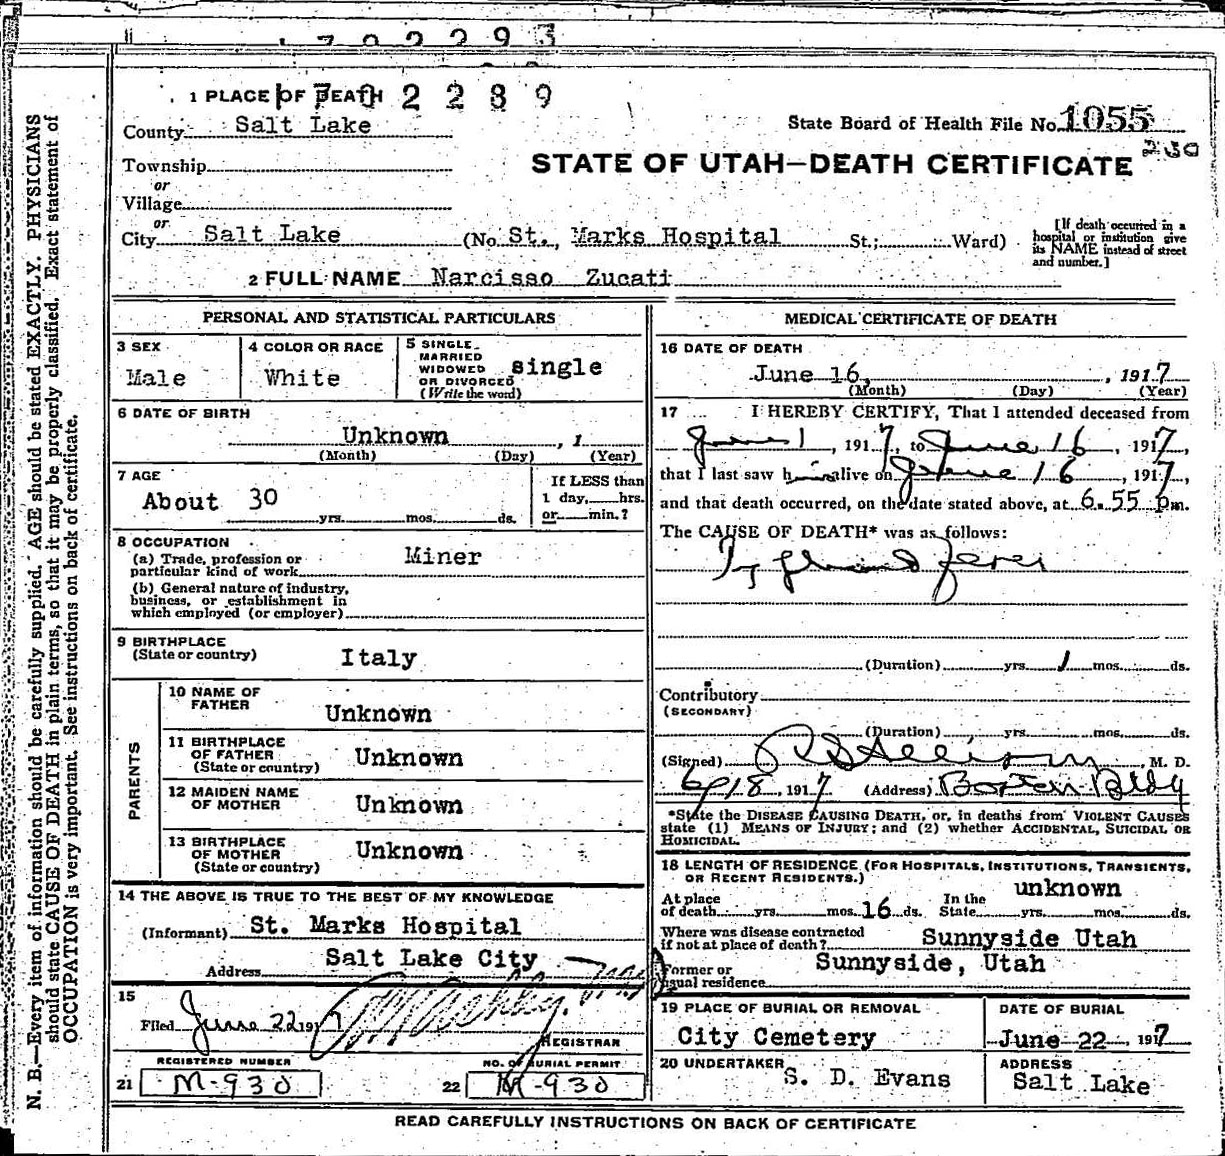 792293
1 PLACE OF DEATH 2289
County Salt Lake
State Board of Health File No. 1055
Township
or
Village
or
STATE OF UTAH—DEATH CERTIFICATE
City Salt Lake (No. St., Marks Hospital St.; Ward)
[If death occurred in a
hospital or institution give
its NAME instead of street
and number.]
2 FULL NAME Narcisso Zucati
PERSONAL AND STATISTICAL PARTICULARS
3 SEX
Male
4 COLOR OR RACE
White
5 SINGLE
MARRIED
WIDOWED
OR DIVORCED
(Write the word)
single
6 DATE OF BIRTH
Unknown , 1
(Month) (Day) (Year)
7 AGE
About 30
yrs. mos. ds.
If LESS than
1 day, hrs.
or min.?
8 OCCUPATION
(a) Trade, profession or
particular kind of work Miner
(b) General nature of industry,
business, or establishment in
which employed (or employer)
9 BIRTHPLACE
(State or country) Italy
PARENTS
10 NAME OF
FATHER Unknown
11 BIRTHPLACE
OF FATHER
(State or country) Unknown
12 MAIDEN NAME
OF MOTHER Unknown
13 BIRTHPLACE
OF MOTHER
(State or country) Unknown
14 THE ABOVE IS TRUE TO THE BEST OF MY KNOWLEDGE
(Informant) St. Marks Hospital
Address Salt Lake City
15
Filed June 22 1917
REGISTRAR
REGISTERED NUMBER
21 M-930
NO. OF BURIAL PERMIT
22 M-930
MEDICAL CERTIFICATE OF DEATH
16 DATE OF DEATH
June 16, , 1917
(Month) (Day) (Year)
17 I HEREBY CERTIFY, That I attended deceased from
June 1, 1917, to June 16, 1917,
that I last saw him alive on June 16, 1917,
and that death occurred, on the date stated above, at 6.55 pm.
The CAUSE OF DEATH* was as follows:
Typhoid fever
(Duration) yrs. 1 mos. ds.
Contributory
(SECONDARY)
(Duration) yrs. mos. ds.
(Signed) , M. D.
6/18, 1917 (Address) Boston Bldg
*State the DISEASE CAUSING DEATH, or, in deaths from VIOLENT CAUSES
state (1) MEANS OF INJURY; and (2) whether ACCIDENTAL, SUICIDAL OR
HOMICIDAL.
18 LENGTH OF RESIDENCE (FOR HOSPITALS, INSTITUTIONS, TRANSIENTS,
OR RECENT RESIDENTS.)
At place
of death yrs. mos. 16 ds.
In the
State unknown yrs. mos. ds.
Where was disease contracted
if not at place of death? Sunnyside Utah
Former or
usual residence Sunnyside, Utah
19 PLACE OF BURIAL OR REMOVAL
City Cemetery
DATE OF BURIAL
June 22 , 1917
20 UNDERTAKER
S. D. Evans
ADDRESS
Salt Lake
READ CAREFULLY INSTRUCTIONS ON BACK OF CERTIFICATE
N. B.—Every item of information should be carefully supplied. AGE should be stated EXACTLY. PHYSICIANS
should state CAUSE OF DEATH in plain terms, so that it may be properly classified. Exact statement of
OCCUPATION is very important. See instructions on back of certificate.